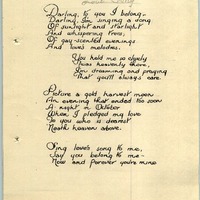 Darling, to you I belong —
Darling, I'm singing a song
Of sunlight and starlight
And whispering trees,
Of gay-scented evenings
And love's melodies.
You held me so closely
'Twas heavenly there,
I'm dreaming and praying
That you'll always care.
Picture a gold harvest moon —
An evening that ended too soon
A night in October
When I pledged my love
To you who is dearest
'Neath heaven above.
Sing love's song to me,
Say you belong to me —
Now and forever you're mine